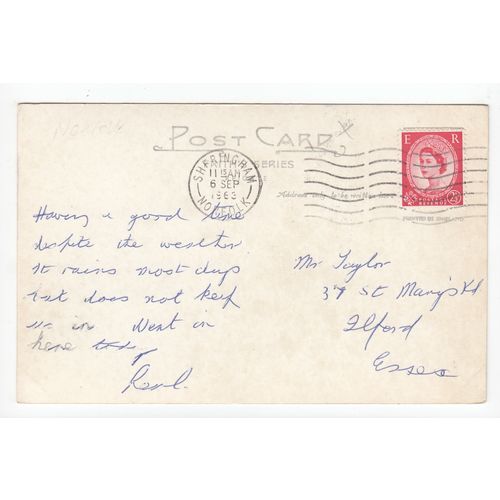 Norfolk
POST CARD
FAITH SERIES
SHERINGHAM
11 15AM
6 SEP
1963
NORFOLK
E R
POSTAGE REVENUE
2½D
Address only to be written here
PRINTED IN ENGLAND
Having a good time
despite the weather
It rains most days
but does not keep
us in Went in
here today
Mr Taylor
37 St Mary's Rd
Ilford
Essex